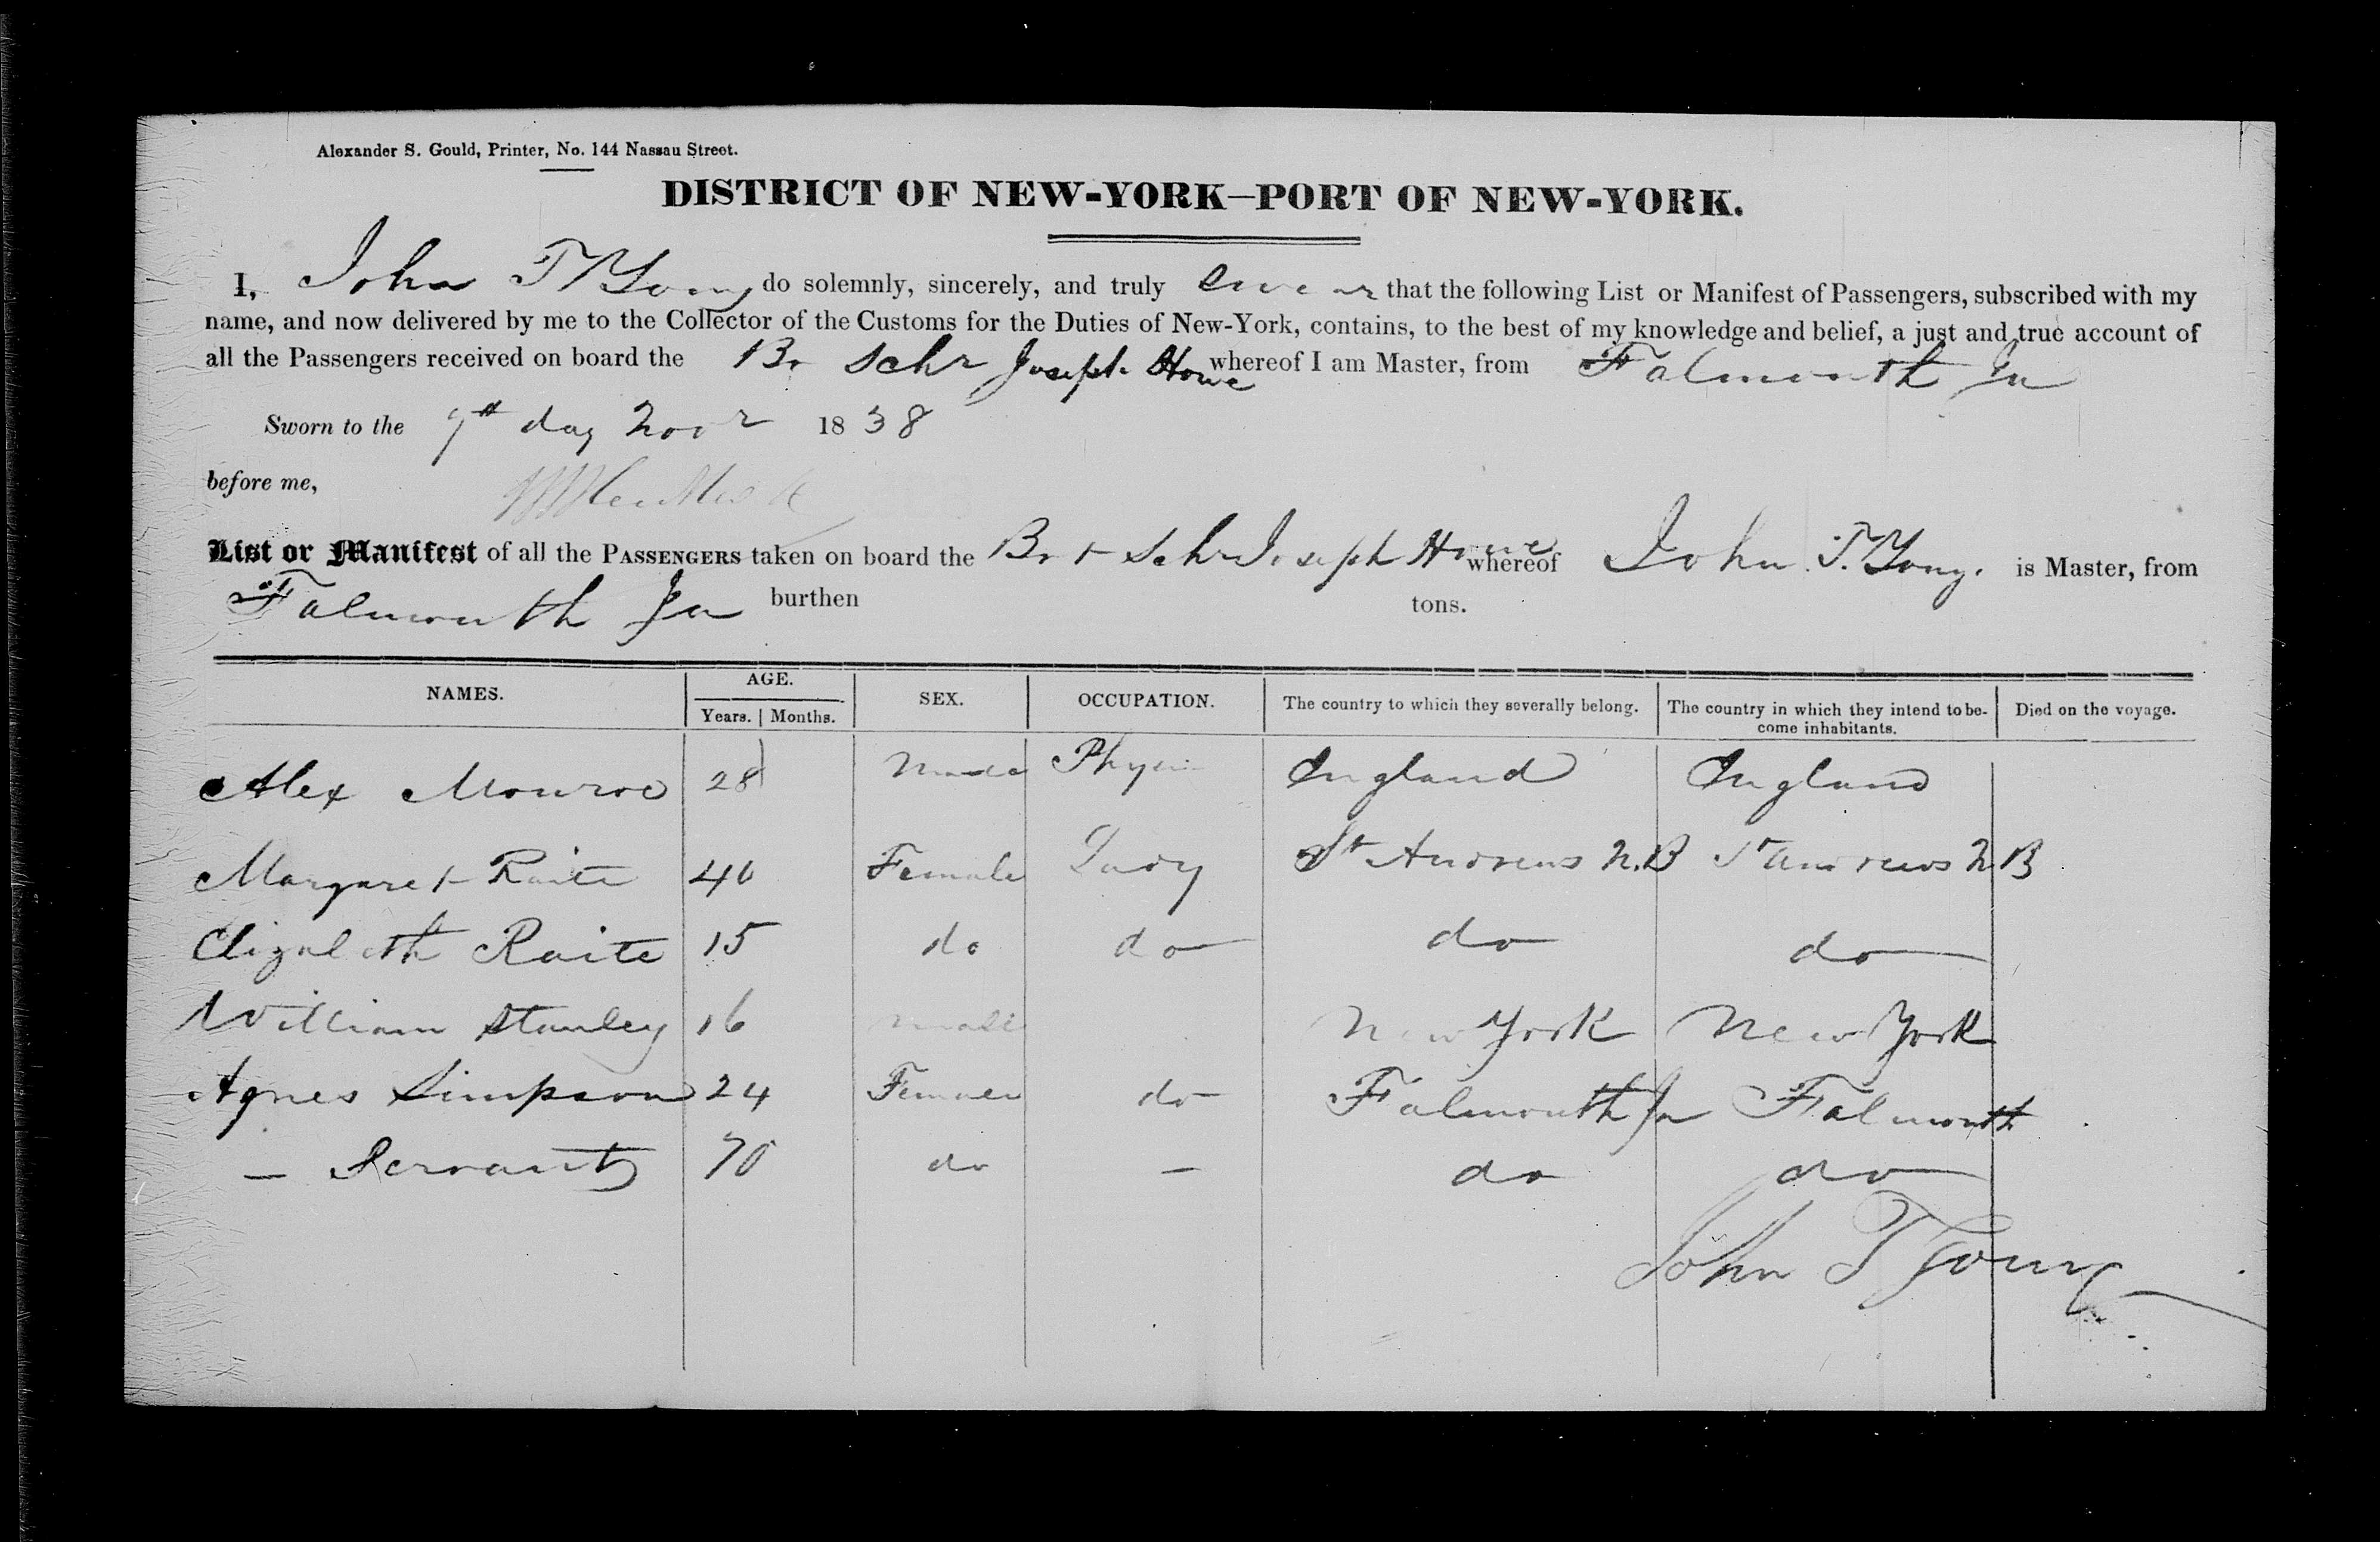 Alexander S. Gould, Printer, No. 144 Nassau Street.
DISTRICT OF NEW-YORK—PORT OF NEW-YORK.
I, John T Young do solemnly, sincerely, and truly swear that the following List or Manifest of Passengers, subscribed with my
name, and now delivered by me to the Collector of the Customs for the Duties of New-York, contains, to the best of my knowledge and belief, a just and true account of
all the Passengers received on board the Br Schr Joseph Howe whereof I am Master, from Falmouth Ja
Sworn to the 9th day Novr 1838
before me,
List or Manifest of all the PASSENGERS taken on board the Brt Schr Joseph Howe whereof John T. Young. is Master, from
Falmouth Ja burthen tons.
NAMES. AGE. SEX. OCCUPATION. The country to which they severally belong. The country in which they intend to be-
Years. Months. come inhabitants. Died on the voyage.
Alex Monroe 28 Male England England
Margaret Raite 40 Female Lady St Andrews N.B St Andrews N B
Elizabeth Raite 15 do do do do
William Stanley 16 male New York New York
Agnes Simpson 24 Female do Falmouth Ja Falmouth
— Servant 70 do — do do
John T Young